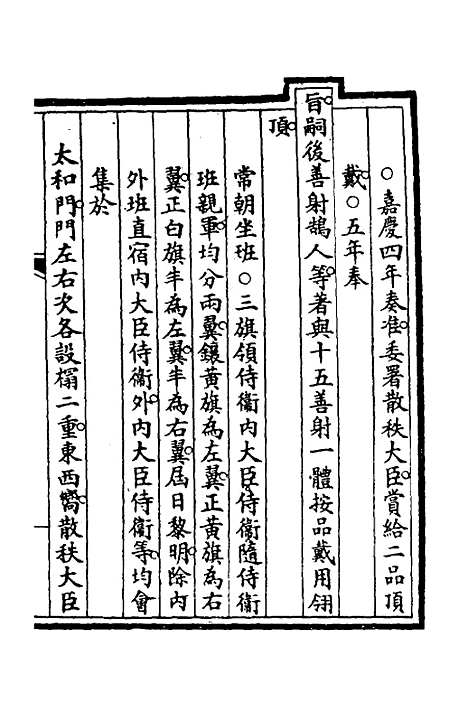 ○嘉慶四年奏准。委署散秩大臣。賞給二品頂
戴。○五年奉
旨。嗣後善射鵠人等。著與十五善射一體按品戴用翎
頂。
常朝坐班○三旗領侍衞內大臣侍衞隨侍衞
班親軍。均分兩翼。鑲黃旗為左翼。正黃旗為右
翼。正白旗半為左翼。半為右翼。屆日黎明。除內
外班直宿內大臣侍衞外。內大臣侍衞等。均會
集於
太和門。門左右次各設榻二重。東西嚮。散秩大臣